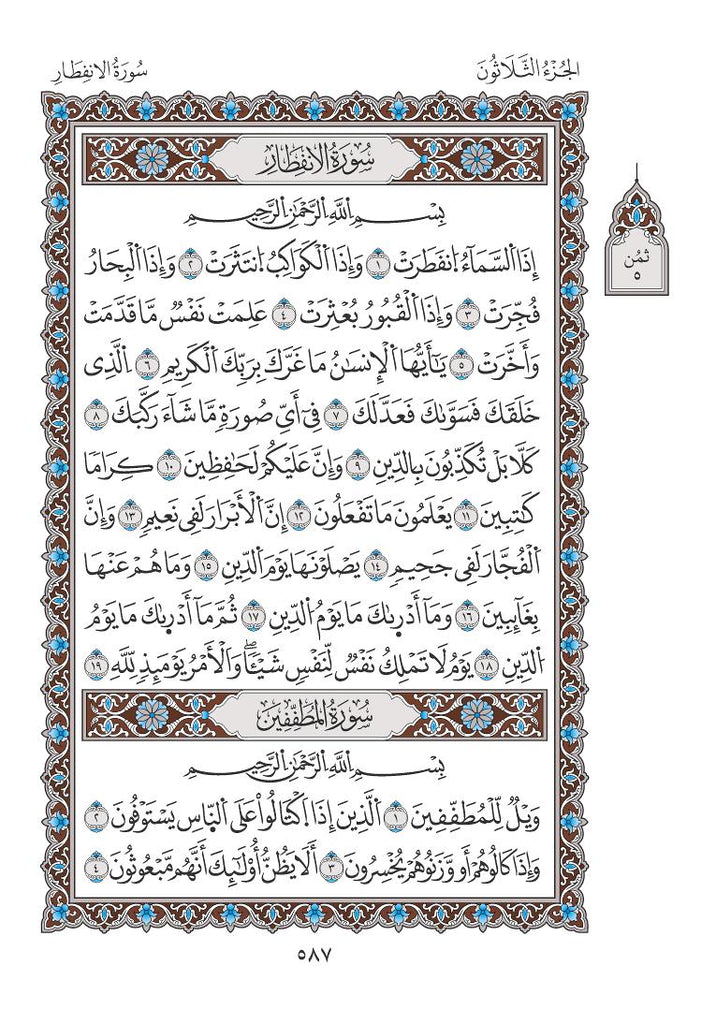 الجُزْءُ الثَّلَاثُونَ
سُورَةُ الانفِطَارِ
سُورَةُ الانفِطَارِ
بِسْمِ اللَّهِ الرَّحْمَٰنِ الرَّحِيمِ
إِذَا اَ۬لسَّمَآءُ اُ۪نفَطَرَتْ ١ وَإِذَا اَ۬لْكَوَاكِبُ اُ۪نتَثَرَتْ ٢ وَإِذَا اَ۬لْبِحَارُ
فُجِّرَتْ ٣ وَإِذَا اَ۬لْقُبُورُ بُعْثِرَتْ ٤ عَلِمَتْ نَفْسٌ مَّا قَدَّمَتْ
وَأَخَّرَتْ ٥ يَٰٓأَيُّهَا اَ۬لْإِنسَٰنُ مَا غَرَّكَ بِرَبِّكَ اَ۬لْكَرِيمِ ٦ اِ۬لَّذِى
خَلَقَكَ فَسَوَّىٰكَ فَعَدَّلَكَ ٧ فِىٓ أَىِّ صُورَةٍ مَّا شَآءَ رَكَّبَكَ ٨
كَلَّا بَلْ تُكَذِّبُونَ بِالدِّينِ ٩ وَإِنَّ عَلَيْكُمْ لَحَٰفِظِينَ ١٠ كِرَامًا
كَٰتِبِينَ ١١ يَعْلَمُونَ مَا تَفْعَلُونَ ١٢ إِنَّ اَ۬لْأَبْرَارَ لَفِى نَعِيمٍ ١٣ وَإِنَّ
اَ۬لْفُجَّارَ لَفِى جَحِيمٍ ١٤ يَصْلَوْنَهَا يَوْمَ اَ۬لدِّينِ ١٥ وَمَا هُمْ عَنْهَا
بِغَآئِبِينَ ١٦ وَمَآ أَدْر۪ىٰكَ مَا يَوْمُ اُ۬لدِّينِ ١٧ ثُمَّ مَآ أَدْر۪ىٰكَ مَا يَوْمُ
اُ۬لدِّينِ ١٨ يَوْمُ لَا تَمْلِكُ نَفْسٌ لِّنَفْسٍ شَيْـًٔاۖ وَالْأَمْرُ يَوْمَئِذٍ لِّلَّهِ ١٩
سُورَةُ المُطَفِّفِينَ
بِسْمِ اللَّهِ الرَّحْمَٰنِ الرَّحِيمِ
وَيْلٌ لِّلْمُطَفِّفِينَ ١ اَ۬لَّذِينَ إِذَا اَ۪كْتَالُوا۟ عَلَى اَ۬لنَّاسِ يَسْتَوْفُونَ ٢
وَإِذَا كَالُوهُمْ أَو وَّزَنُوهُمْ يُخْسِرُونَ ٣ أَلَا يَظُنُّ أُو۟لَٰٓئِكَ أَنَّهُم مَّبْعُوثُونَ ٤
ثُمُن
٥
٥٨٧